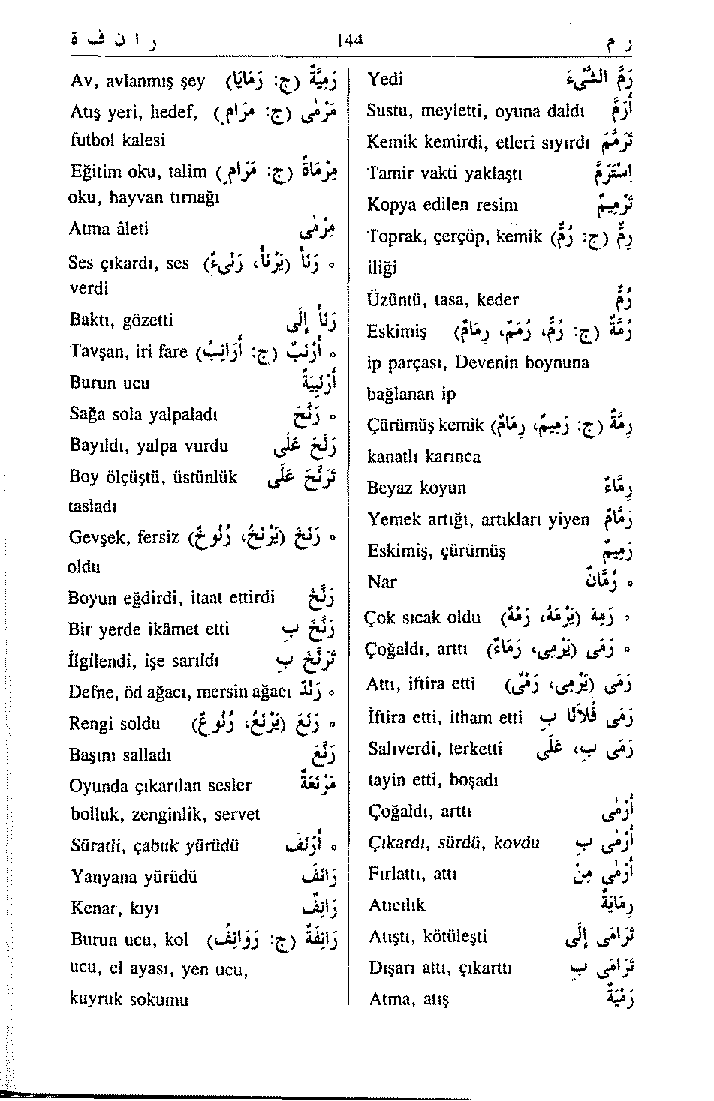 ر م 144 ر ا ن ف ة
رَمَّ الشَّيْءَ Yedi
أَرَمَّ Sustu, meyletti, oyuna daldı
تَرَمَّمَ Kemik kemirdi, etleri sıyırdı
اِسْتَرَمَّ Tamir vakti yaklaştı
تَرْمِيمٌ Kopya edilen resim
رِمٌّ (ج: رُمٌّ) Toprak, çerçöp, kemik
iliği
رُمٌّ Üzüntü, tasa, keder
رُمَّةٌ (ج: رُمٌّ، رُمَمٌ، رِمَامٌ) Eskimiş
ip parçası, Devenin boynuna
bağlanan ip
رِمَّةٌ (ج: رَمِيمٌ، رِمَامٌ) Çürümüş kemik
kanatlı karınca
رِمَّاءُ Beyaz koyun
رَمَّامٌ Yemek artığı, artıkları yiyen
رَمِيمٌ Eskimiş, çürümüş
° رُمَّانٌ Nar
° رَمِهَ (يَرْمَهُ، رَمَهٌ) Çok sıcak oldu
° رَمَى (يَرْمِى، رَمَاءٌ) Çoğaldı, arttı
رَمَى (يَرْمِى، رَمْىٌ) Attı, iftira etti
رَمَى فُلَانًا ب İftira etti, itham etti
رَمَى ب، عَلَى Salıverdi, terketti
tayin etti, boşadı
أَرْمَى Çoğaldı, arttı
أَرْمَى ب Çıkardı, sürdü, kovdu
أَرْمَى مِنْ Fırlattı, attı
رِمَايَةٌ Atıcılık
تَرَامَى إِلَى Atıştı, kötüleşti
تَرَامَى ب Dışarı attı, çıkarttı
رَمْيَةٌ Atma, atış
رَمِيَّةٌ (ج: رَمَايَا) Av, avlanmış şey
مَرْمًى (ج: مَرَامٍ) Atış yeri, hedef,
futbol kalesi
مِرْمَاةٌ (ج: مَرَامٍ) Eğitim oku, talim
oku, hayvan tırnağı
مِرْمًى Atma âleti
° رَنَأَ (يَرْنَأُ، رَنْءٌ) Ses çıkardı, ses
verdi
رَنَأَ إِلَى Baktı, gözetti
° أَرْنَبٌ (ج: أَرَانِبُ) Tavşan, iri fare
أَرْنَبَةٌ Burun ucu
° رَنَّحَ Sağa sola yalpaladı
رَنَّحَ عَلَى Bayıldı, yalpa vurdu
تَرَنَّحَ عَلَى Boy ölçüştü, üstünlük
tasladı
° رَنَخَ (يَرْنَخُ، رُنُوخٌ) Gevşek, fersiz
oldu
رَنَّخَ Boyun eğdirdi, itaat ettirdi
رَنَّخَ ب Bir yerde ikâmet etti
تَرَنَّخَ ب İlgilendi, işe sarıldı
° رَنْدٌ Defne, öd ağacı, mersin ağacı
° رَنَعَ (يَرْنَعُ، رُنُوعٌ) Rengi soldu
رَنَّعَ Başını salladı
مَرْنَعَةٌ Oyunda çıkarılan sesler
bolluk, zenginlik, servet
° أَرْنَفَ Süratli, çabuk yürüdü
رَانَفَ Yanyana yürüdü
رَانِفٌ Kenar, kıyı
رَانِفَةٌ (ج: رَوَانِفُ) Burun ucu, kol
ucu, el ayası, yen ucu,
kuyruk sokumu